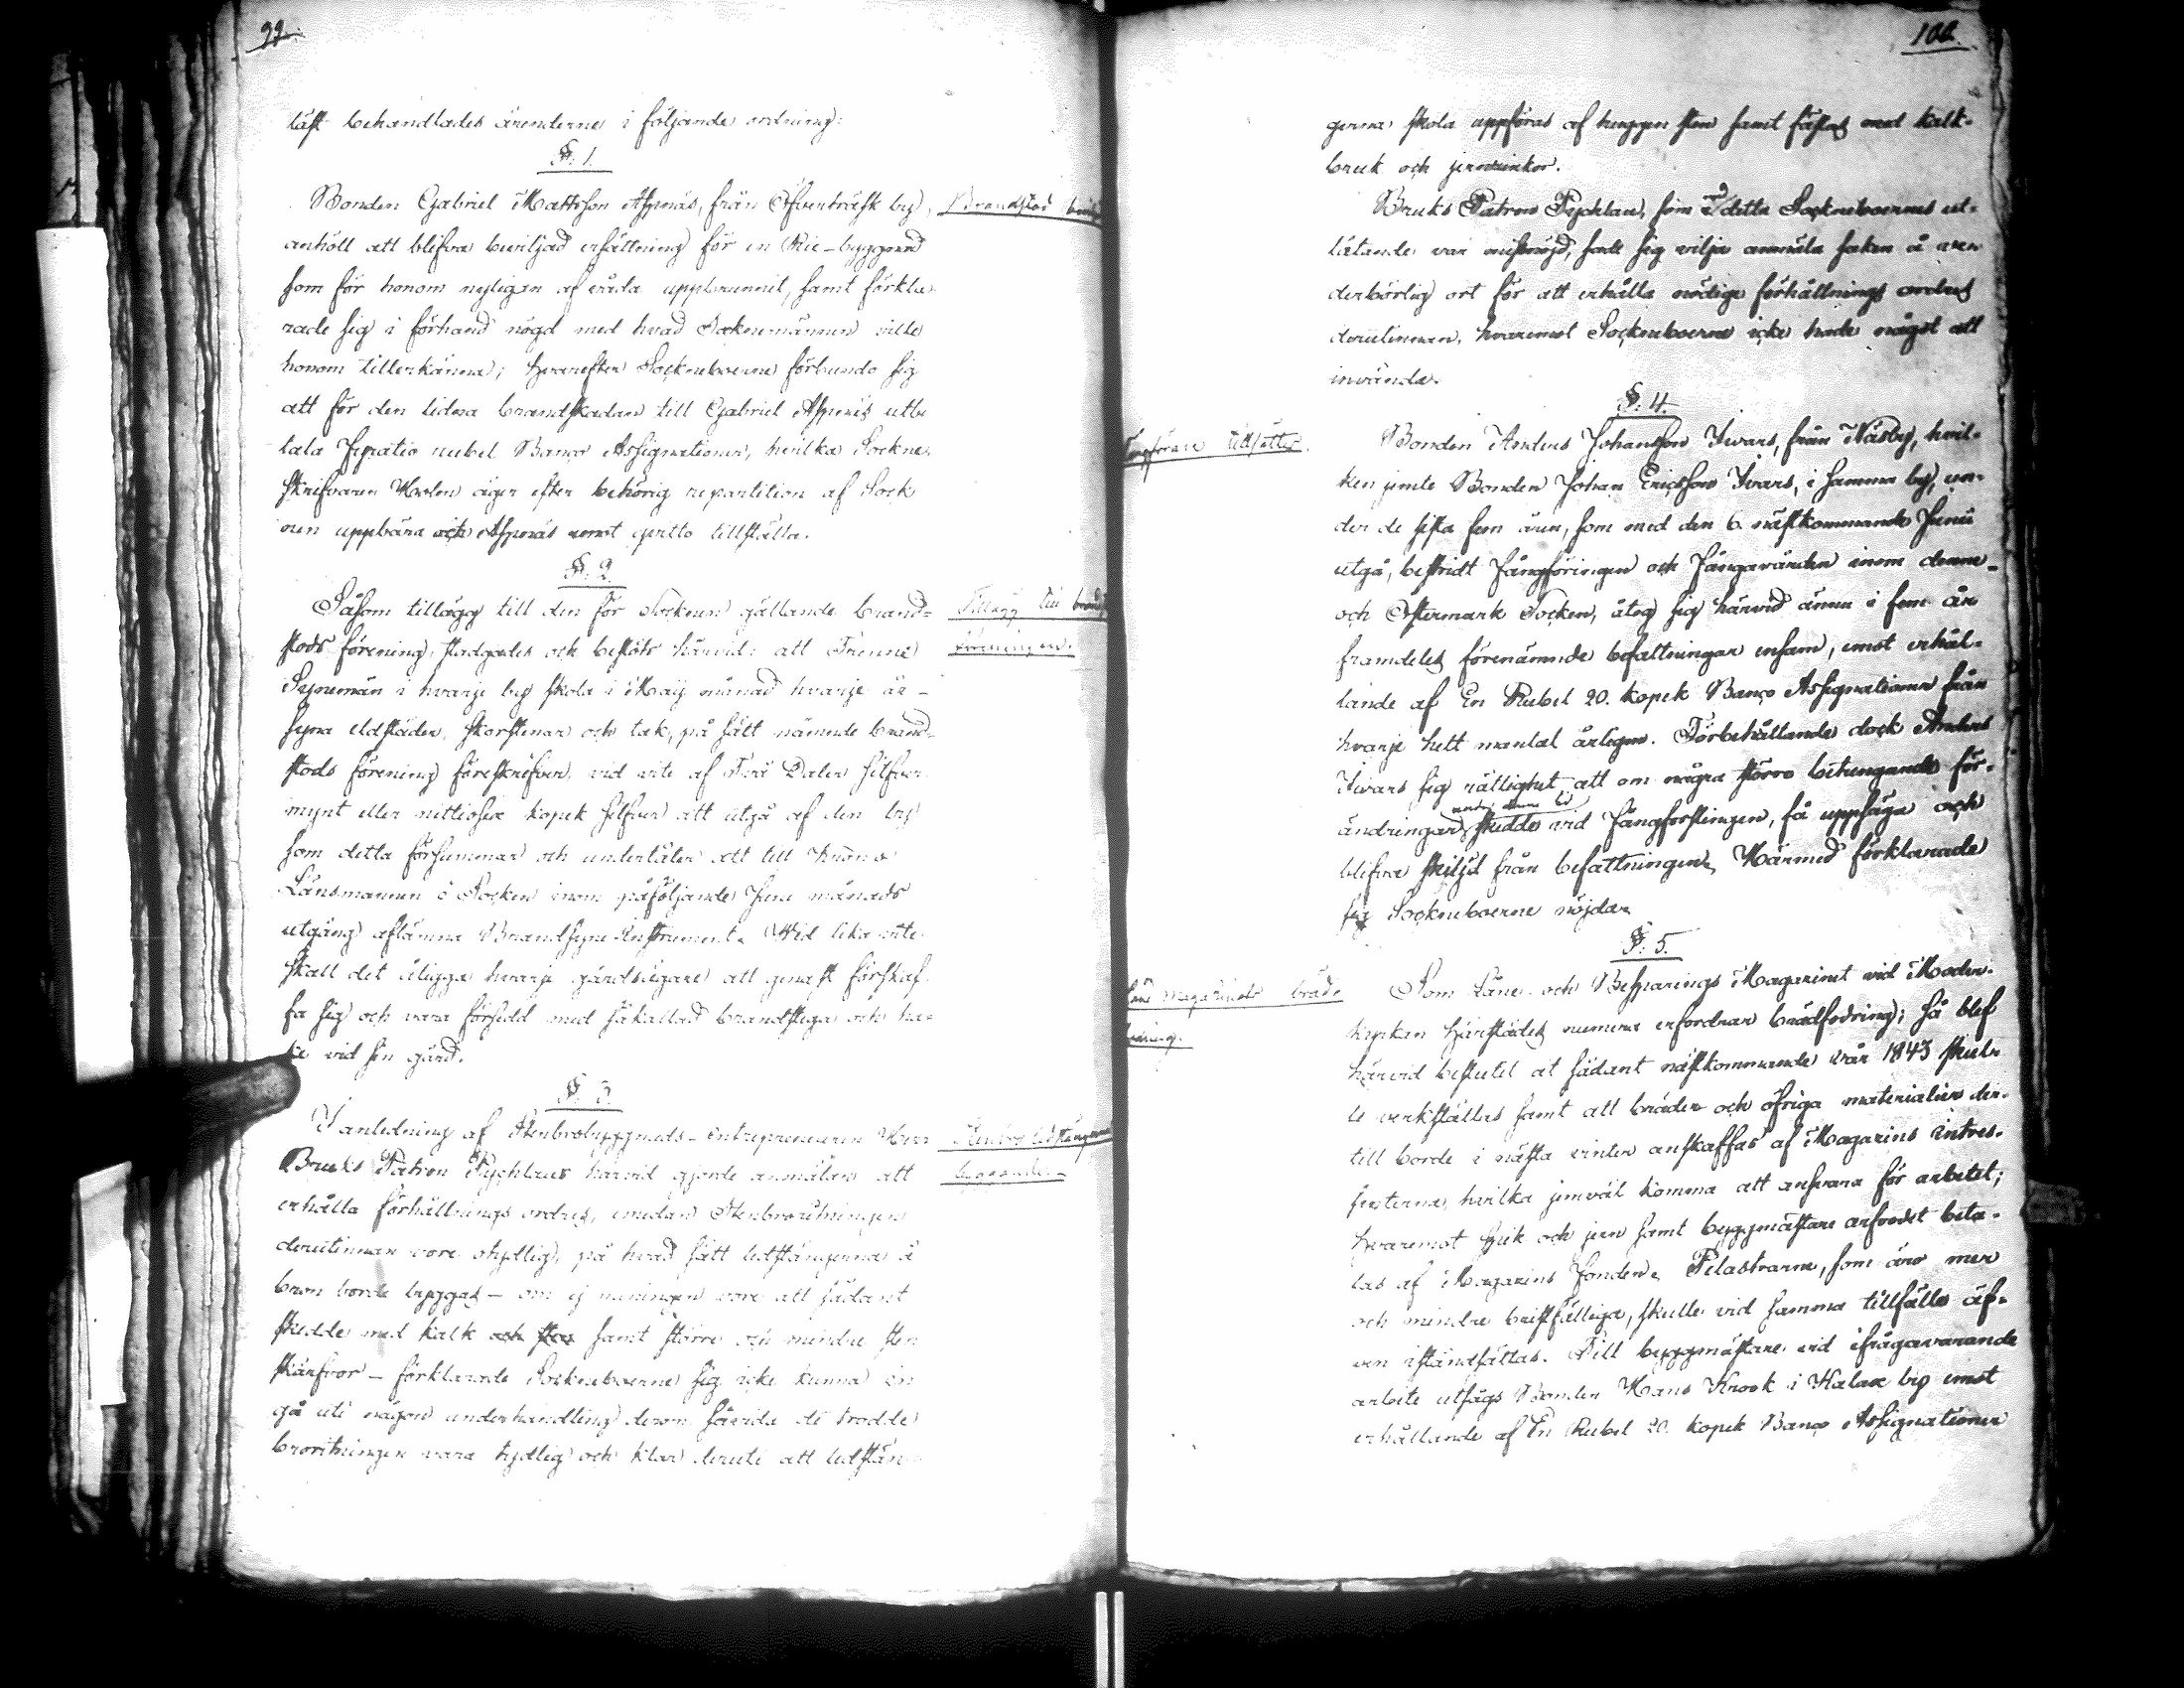 99.
läst behandlades ärenderne i följande ordning:
§. 1.
Bonden Gabriel Mattsson Aspnäs, från Öfverträsk by,
anhöll att blifva beviljad ersättning för en Rie-byggnad
som för honom nyligen af våda uppbrunnit, samt förkla-
rade sig i förhand nögd med hvad Socknemännen ville
honom tillerkänna; hvarefter Sockneboerne förbundo sig
att för den lidna brandskadan till Gabriel Aspnäs utbe
tala Sexratio rubel Banco Assignationer, hvilka Sockne-
skrifvaren Holm äger efter behörig repartition af Sock
nen uppbära och Aspnäs emot qvitto tillställa.
Brandstod
§. 2.
Såsom tillägg till den för Socknen gällande brand-
stods förening, stadgades och beslöts härvid: att Trenne
Synemän i hvarje by skola i Maij månad hvarje år
syna eldstäder, skorstenar och tak, på sätt nämnde brand-
stods förening föreskrifver, vid vite af Två Daler silfver
mynt eller nittiosex kopek silfver att utgå af den by
som detta försummar och underlåter att till Krono
Länsmannen i Socken inom påföljande Junii månads
utgång aflämna Brandsyne Instrument. Wid lika vite
skall det åligga hvarje gårdsägare att genast förskaf-
fa sig och vara försedd med såkallad brandstega och ha-
ke vid sin gård.
Tillägg till brands
föreningen.
§. 3.
I anledning af Stenbrobyggnads-entrepreneuren Herr
Bruks Patron Tychlaus härvid gjorde anmälan att
erhålla förhållnings ordres, emedan Stenbroritningen
derutinnan vore otydlig, på hvad sätt ledstängerna å
bron borde byggas - om ej meningen vore att sådant
skedde med kalk och sten samt större och mindre sten
skärfvor - förklarade Sockneboerne sig icke kunna in
gå uti någon underhandling derom såvida de trodde
broritningen vara tydlig och klar deruti att ledstän
100.
gerna skola uppföras af huggen sten samt fästas med kalk-
bruk och jernvinkor.
Bruks Patron Tychlau, som med detta Sockneboernes ut-
låtande var missnöjd, sade sig vilja anmäla saken å ven
derbörlig ort för att erhålla nödige förhållnings ordres
derutinnan, hvaremot Socknerboerne icke hade något att
invända.
§. 4.
Fångförare tillsättes.
Bonden Anders Johansson Ivars, från Näsby, hvil-
ken jemte Bonden Johan Ericsson Ivars, i samma by, un-
der de sista fem åren, som med den 6. nästkommande Junii
utgå, bestridt fångföringen och fångavården inom denne
och Östermark Socken, åtog sig härvid ännu i fem år
framdeles förenämnde befattningar ensam, emot erhål-
lande af En Rubel 20. kopek Banco Assignationer från
hvarje helt mantal årligen. Förbehållande dock Anders
Ivars sig rättighet, att om några större betungande för-
under denne tid
ändringar skedde vid fångforslingen, få uppsäga och
blifva skiljd från befattningen. Härmed förklarade
sig Socknerboerne nöjda.
§. 5.
Låne Magazinets bräd-
fodring.
Som Låne och Besparings Magazinet vid Moder-
kyrkan härstädes numera erfordrar brädfodring; så blef
härvid beslutet at sådant nästkommande vår 1843 skul-
le verkställas samt att bräder och öfriga materialier der-
till borde i nästa vinter anskaffas af Magazins intres-
senterna, hvilka jemväl komma att ansvara för arbetet;
hvaremot spik och jern samt byggmästare arfvodet beta-
las af Magazins fonden. Pelastrarne, som äro mer
och mindre bristfällige, skulle vid samma tillfälle äf-
ven iståndsättas. Till byggmästare vid ifrågavarande
arbete utsågs Bonden Hans Krook i Kalax by emot
erhållande af En Rubel 20. kopek Banco Assignationer